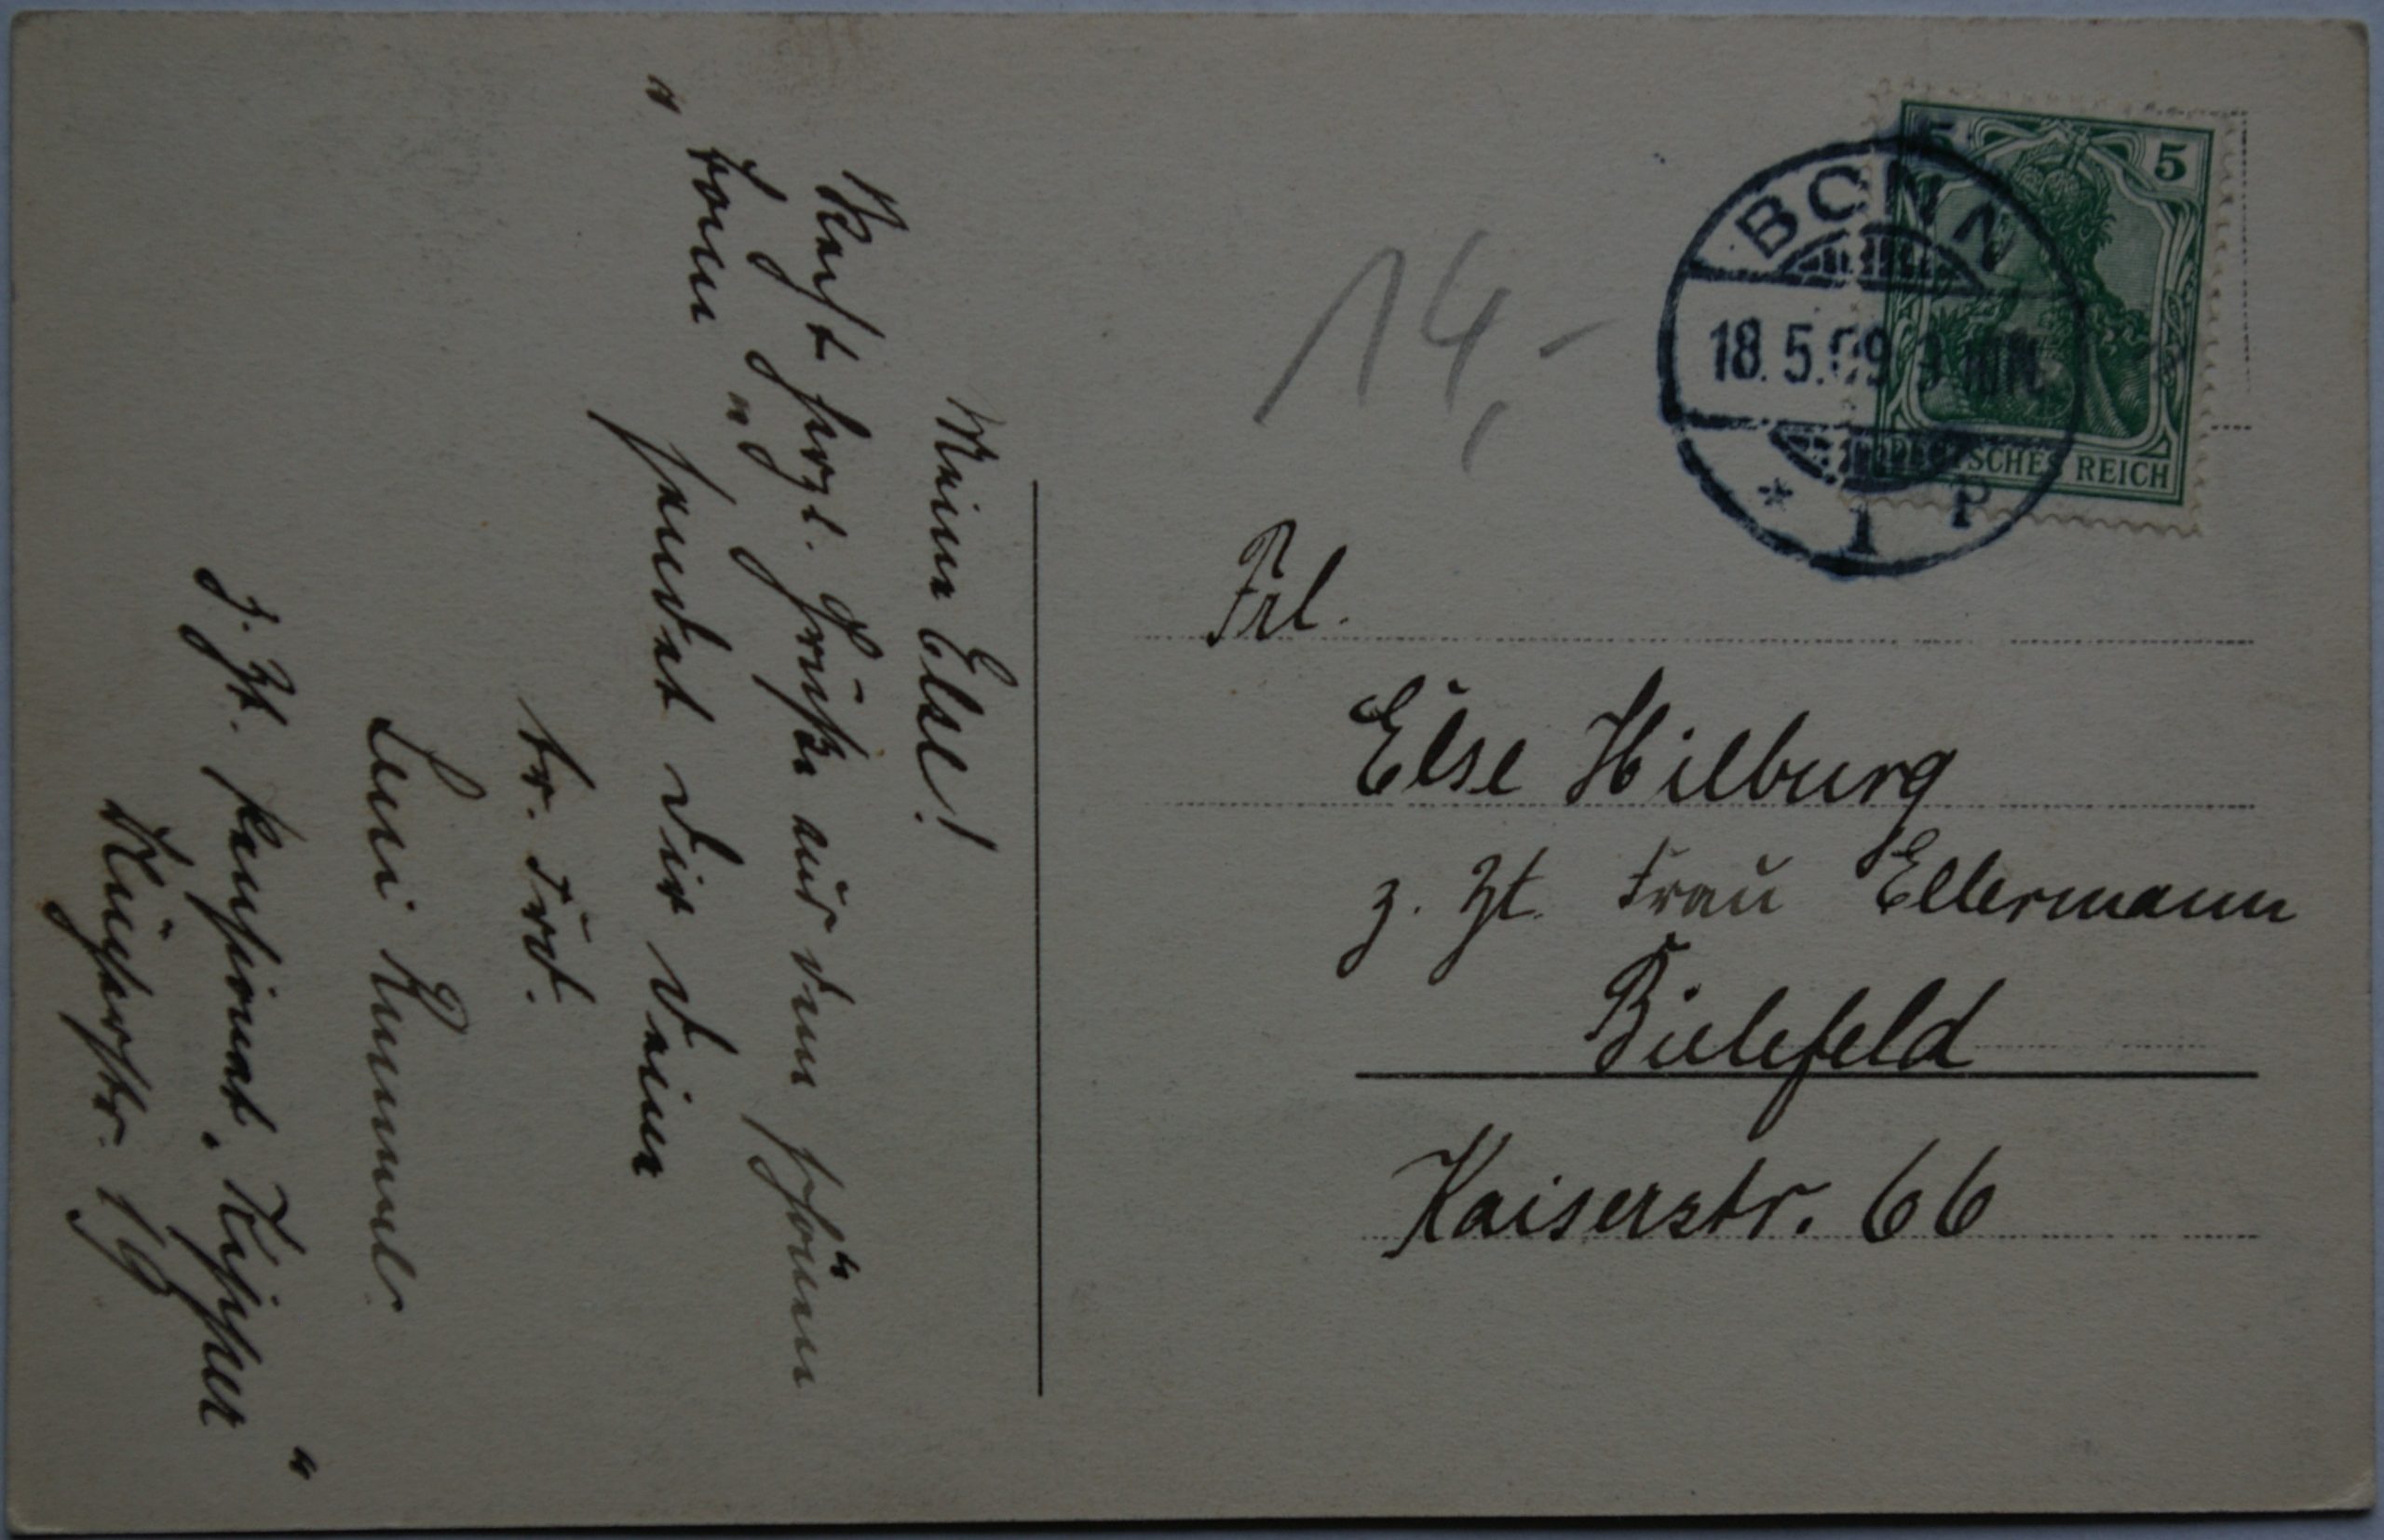 Meine Else!
Recht herzl. Grüße aus dem schönen
„Bonn" sendet dir deine
tr. Frd.
Leni Kümmel.
z. Zt. Pensionat.
str. 19
14,-
BONN
18.5.09
* 1 P
5 5
DEUTSCHES REICH
Frl.
Else Hilburg
z. Zt. Frau Ellermann
Bielefeld
Kaiserstr. 66